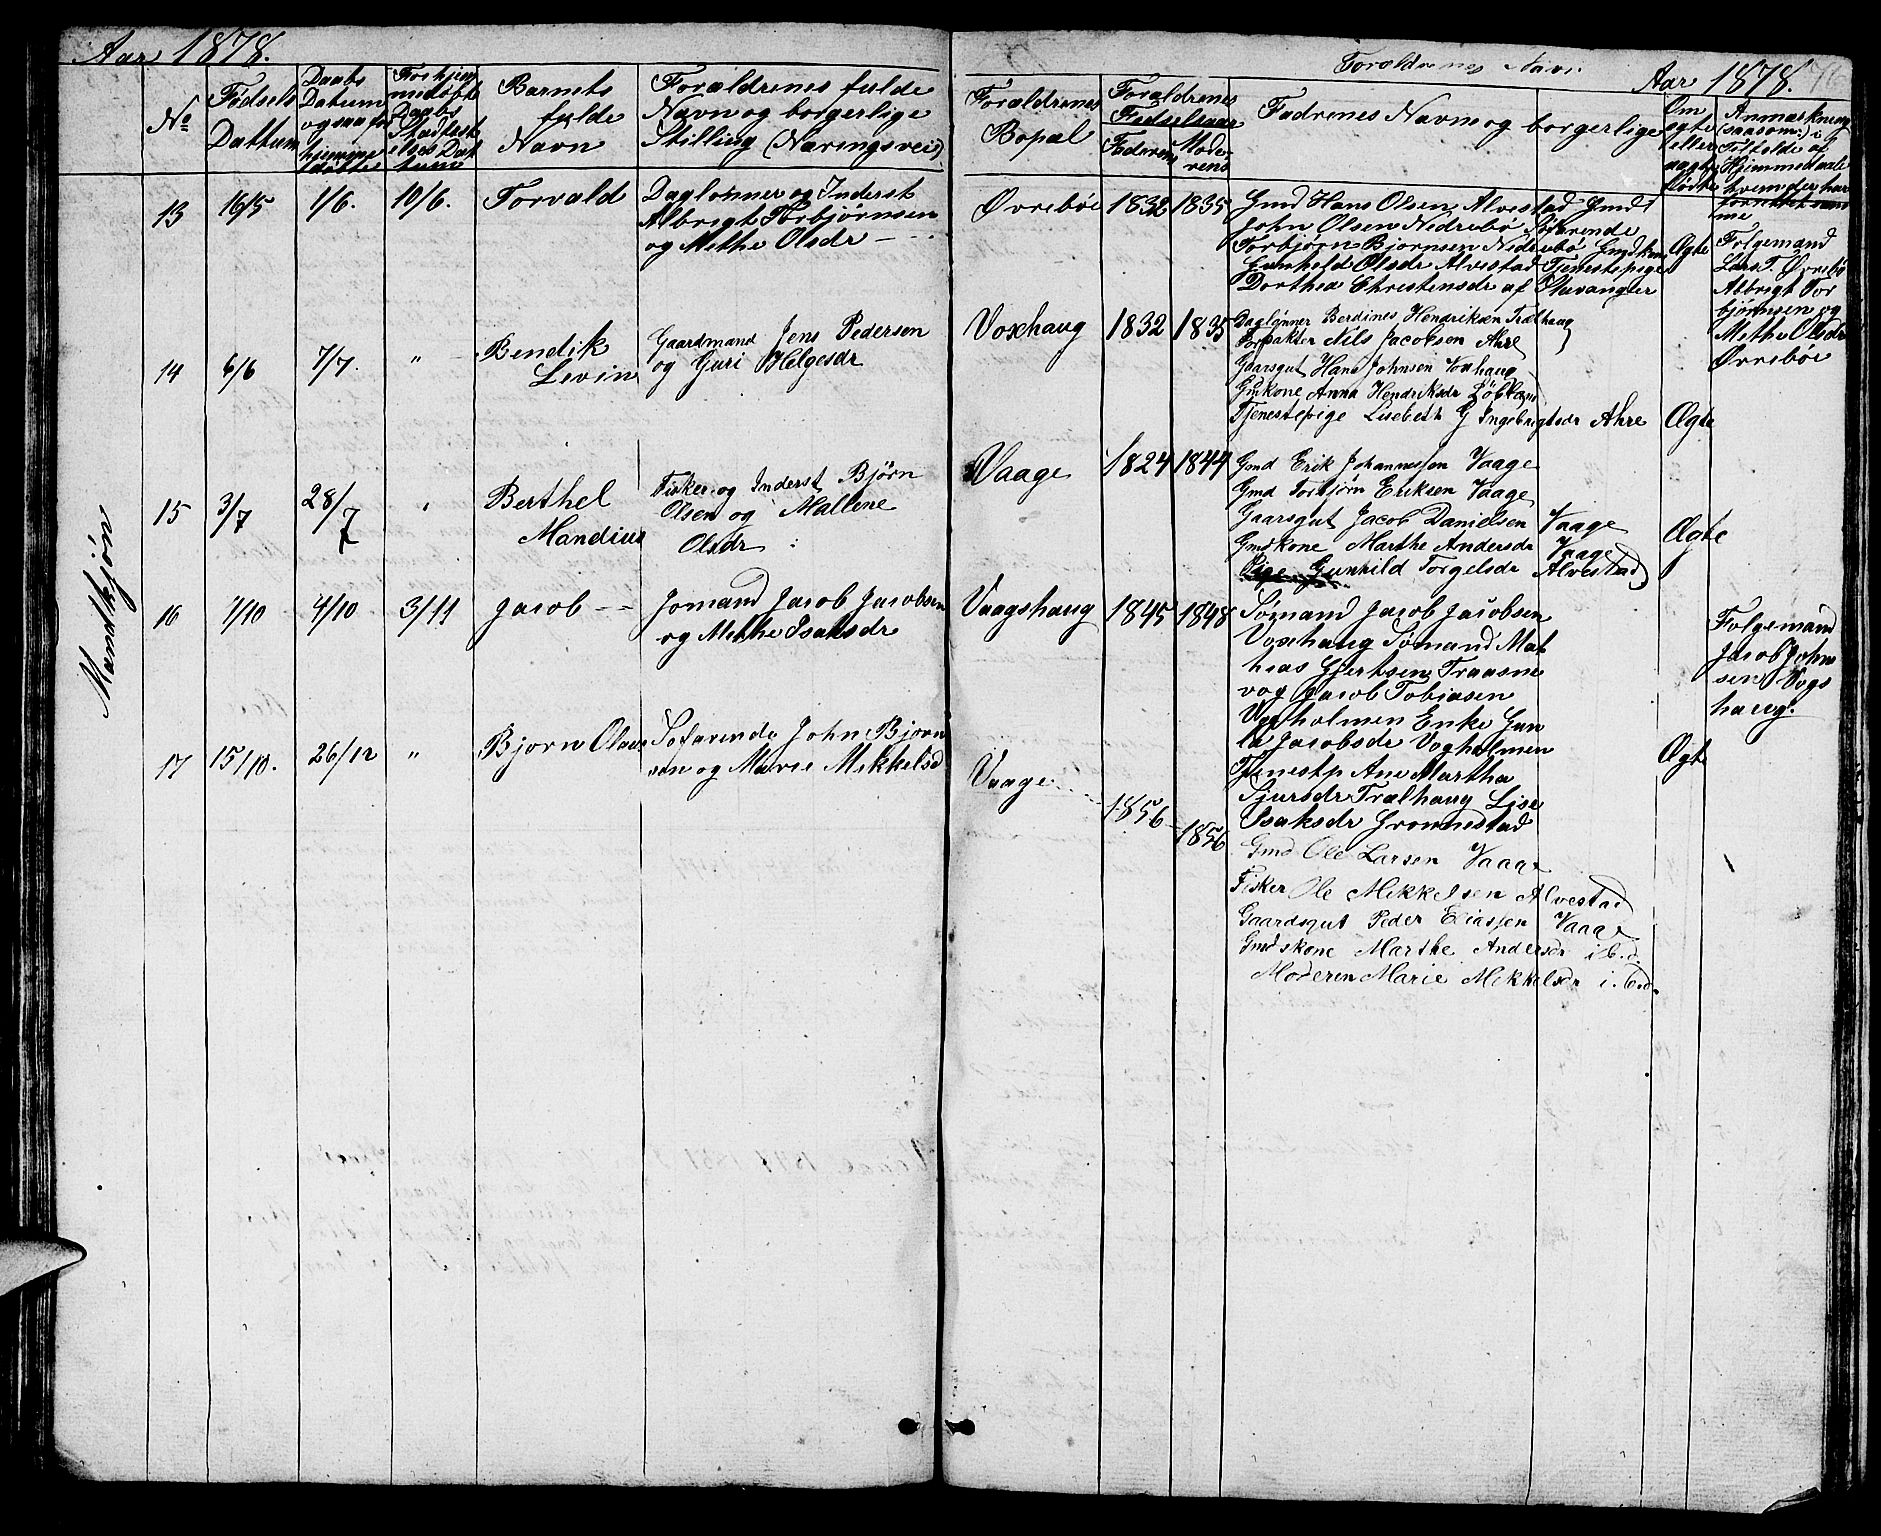 Aar 1878.
No
Fødsels
Dattum
Daabs
Datum
og saa for
hjemme
døbte
Daabs
Barnets
fulde
Navn
Forældrenes fulde
Navn og borgerlige
Stilling (Næringsvei)
Mandkjøn
13
16/5
1/6.
10/6.
Torvald
Daglønner og Inderst
Albrigt Torbjørnsen
og Methe Olsdr
14
6/6
7/7.
"
Bendik
Levin
Gaardmand Jens Pedersen
og Guri Helgesdr
15
3/7
28/7
"
Berthel
Mandius
Fisker og Inderst Bjørn
Olsen og Mallene
Olsdr
16
1/10
4/10
3/11
Jacob
Jomand Jacob Jacobsen
og Methe Isaksdr
17
15/10.
26/12
"
Bjorn Olaus
Sofarende John Bjorn
sen og Marie Mikkelsd
Forældrenes Navn
Aar 1878.
Forældrenes
Bopæl
Forældrenes
Fødselsaar
Faderens
Mode-
rens
Fadrenes Navn og borgerlige
Om
ægte
eller
uægte
fødte
Anmærkning
(saasom:) i
Tilfelde af
Hjemmedaab
hvem der har
forrettet samme
Øvrebøe
1832
1835
Gmd Hans Olsen Alvestad Gmd
John Olsen Nidrebø Sofarende
Torbjørn Bjornsen Nidrebø Gmdkone
Gunheld Olsdr Alvestad Tjenestepige
Dorthea Christensdr af Stavanger
Ægte
Folgemand
Lars T. Øvrebø
Albrigt Tor
bjørnsen og
Methe Olsdr
Øvrebøe
Voxhaug
1832
1835
Daglønner Berdines Hendriksen Trælhaug
Forpakter Nils Jacobsen Ahre
Gaarsgut Hans Johnsen Voxhaug
Gmkone Anna Hendriksdr
Tjenestepige Lisebeth G Ingebrigtsdr Ahre
Ægte
Vaage
1824
1844
Gmd Erik Johannessen Vaage
Gmd Torbjørn Eriksen Vaage
Gaarsgut Jacob Danielsen Vaage
Gmdkone Marthe Andersdr Vaage
Pige Gunhild Torgelsdr Alvestad
Ægte
Vaagshaug
1845
1848
Sømand Jacob Jacobsen
Voxhaug Sømand Mat
hias Gjertsen Traasne
vog Jacob Tobiasen
Vogholmen Enke Gun
la Jacobsdr Vogholmen
Tjenestp Ane Martha
Sjursdr Trælhaug Lise
Isaksdr Gronnestad
Folgemand
Jacob Johns
sen Vogs
haug.
Ægte
Vaage
1856
1856
Gmd Ole Larsen Vaage
Fisker Ole Mikkelsen Alvestad
Gaardsgut Peder Eliassen Vaage
Gmdskone Marthe Andersdr ibd.
Moderen Marie Mikkelsdr i.bd.